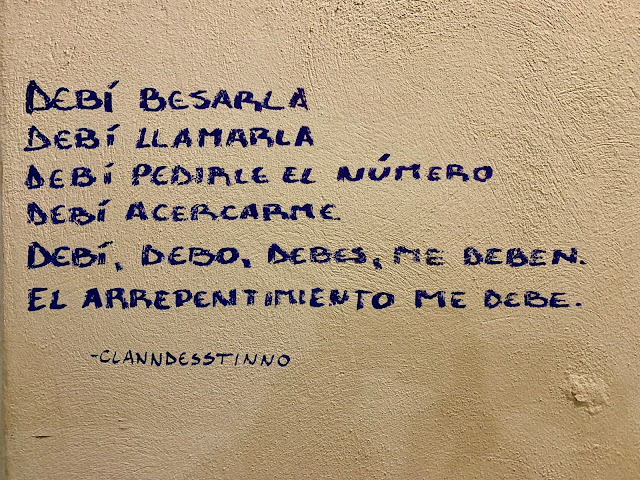 DEBÍ BESARLA
DEBÍ LLAMARLA
DEBÍ PEDIRLE EL NÚMERO
DEBÍ ACERCARME
DEBÍ, DEBO, DEBES, ME DEBEN.
EL ARREPENTIMIENTO ME DEBE.
-CLANNDESSTINNO